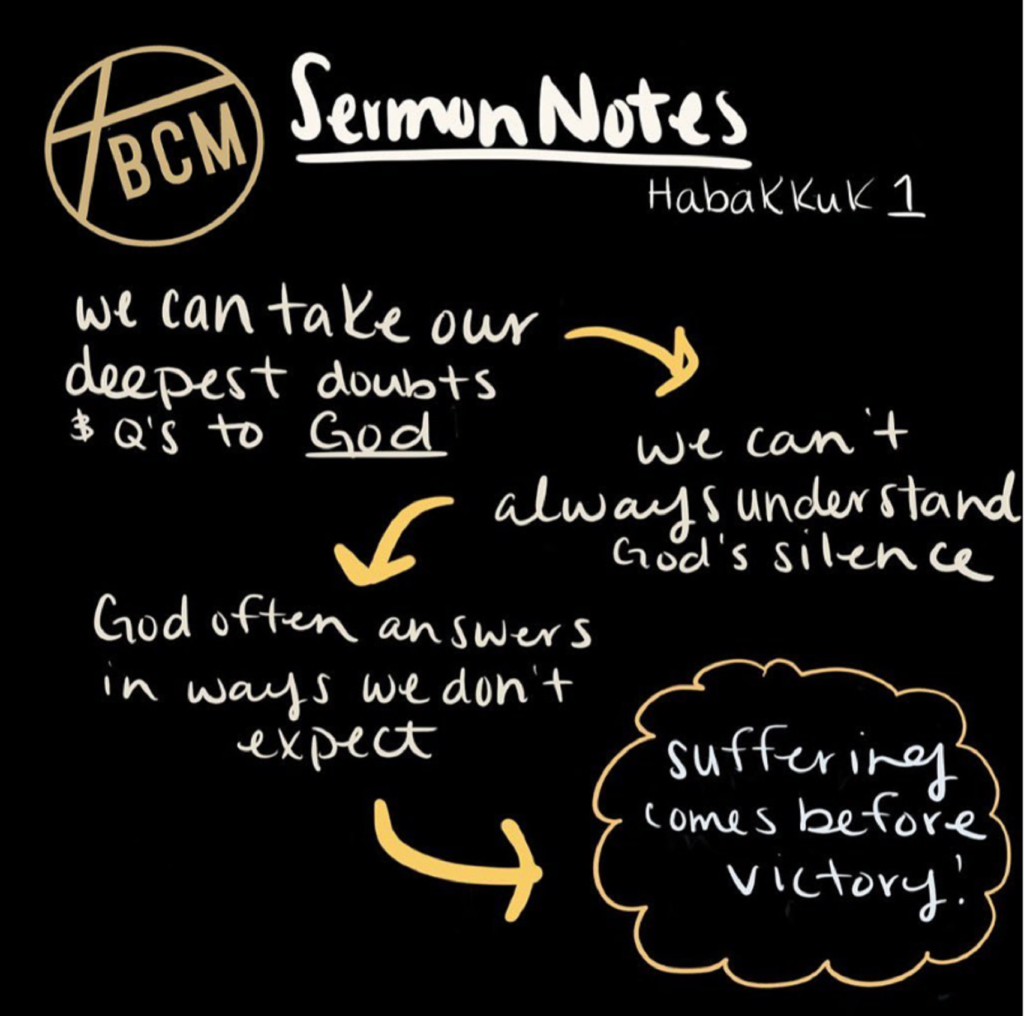 BCM
Sermon Notes
Habakkuk 1
we can take our
deepest doubts
& Q's to God
we can't
always understand
God's silence
God often answers
in ways we don't
expect
suffering
comes before
victory!